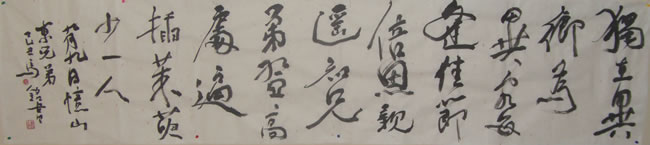 獨在異
鄉為
異客每
逢佳節
倍思親
遥知兄
弟登高
處遍
插茱萸
少一人
九月九日憶山
東兄弟